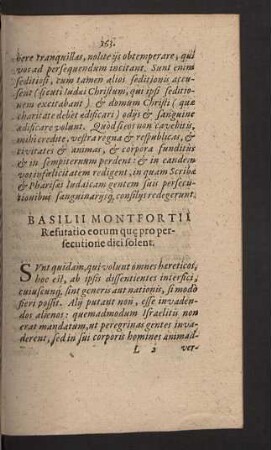 163.
bere tranquillas, nolite ijs obtemperare, qui
vos ad persequendum incitant. Sunt enim
seditiosi, cum tamen alios seditionis accu-
sent (sicuti Iudæi Christum, qui ipsi seditio-
nem excitabant) & domum Christi (quæ
charitate debet ædificari) odijs & sanguine
ædificare volunt. Quòd si eos non cavebitis,
mihi credite, vestra regna & respublicas, &
civitates & animas, & corpora funditùs
& in sempiternum perdent: & in eandem
vos infœlicitatem redigent, in quam Scribæ
& Pharisæi Iudaicam gentem suis persecu-
tionibus sanguinarijsq; consilijs redegerunt.
BASILII MONTFORTII
Refutatio eorum quę pro per-
secutione dici solent.
SVnt quidam, qui volunt omnes hæreticos,
hoc est, ab ipsis dissentientes interfici,
cuiuscunq; sint generis aut nationis, si modò
fieri possit. Alij putant non, esse invaden-
dos alienos: quemadmodum Israëlitis non
erat mandatum, ut peregrinas gentes inva-
derent, sed in sui corporis homines animad-
L 2 ver-